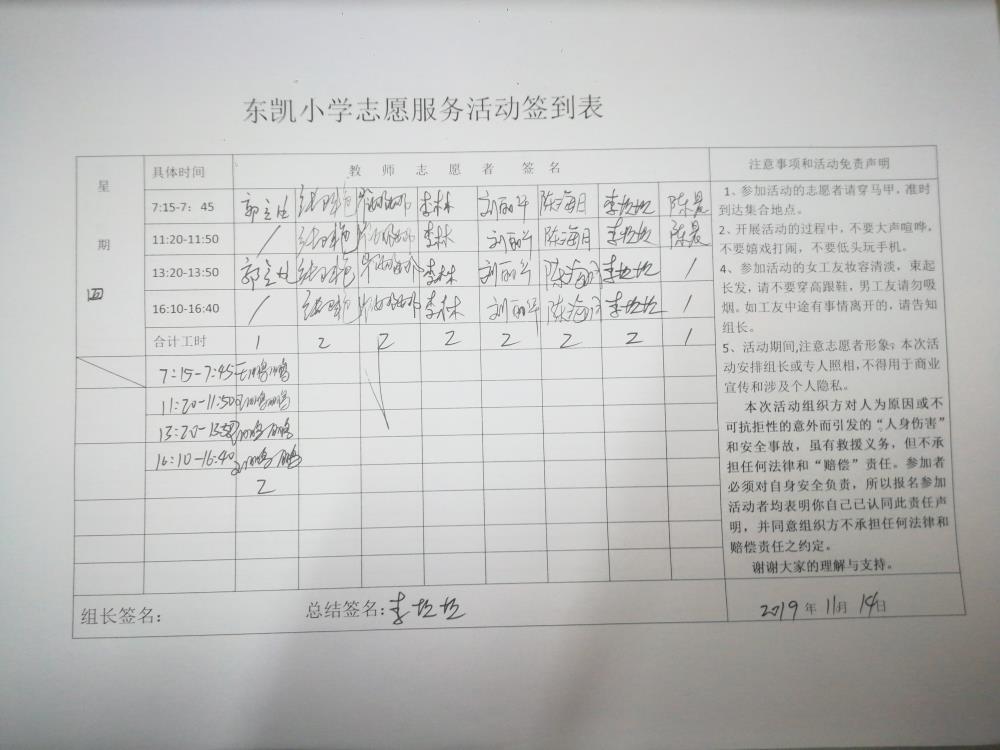 东凯小学志愿服务活动签到表
星期四
具体时间 教师志愿者签名
7:15-7:45 李林 陈海月 李垃垃 陈晨
11:20-11:50 / 李林 陈海月 李垃垃 陈晨
13:20-13:50 李林 李垃垃 /
16:10-16:40 / 李垃垃 /
合计工时 1 2 2 2 2 2 2 1
7:15-7:45
11:20-11:50
13:20-13:50
16:10-16:40
2
注意事项和活动免责声明
1、参加活动的志愿者请穿马甲，准时
到达集合地点。
2、开展活动的过程中，不要大声喧哗，
不要嬉戏打闹，不要低头玩手机。
4、参加活动的女工友妆容清淡，束起
长发，请不要穿高跟鞋，男工友请勿吸
烟。如工友中途有事情离开的，请告知
组长。
5、活动期间,注意志愿者形象；本次活
动安排组长或专人照相,不得用于商业
宣传和涉及个人隐私。
本次活动组织方对人为原因或不
可抗拒性的意外而引发的“人身伤害”
和安全事故，虽有救援义务，但不承
担任何法律和“赔偿”责任。参加者
必须对自身安全负责，所以报名参加
活动者均表明你自己已认同此责任声
明，并同意组织方不承担任何法律和
赔偿责任之约定。
谢谢大家的理解与支持。
组长签名： 总结签名：李垃垃
2019年11月14日